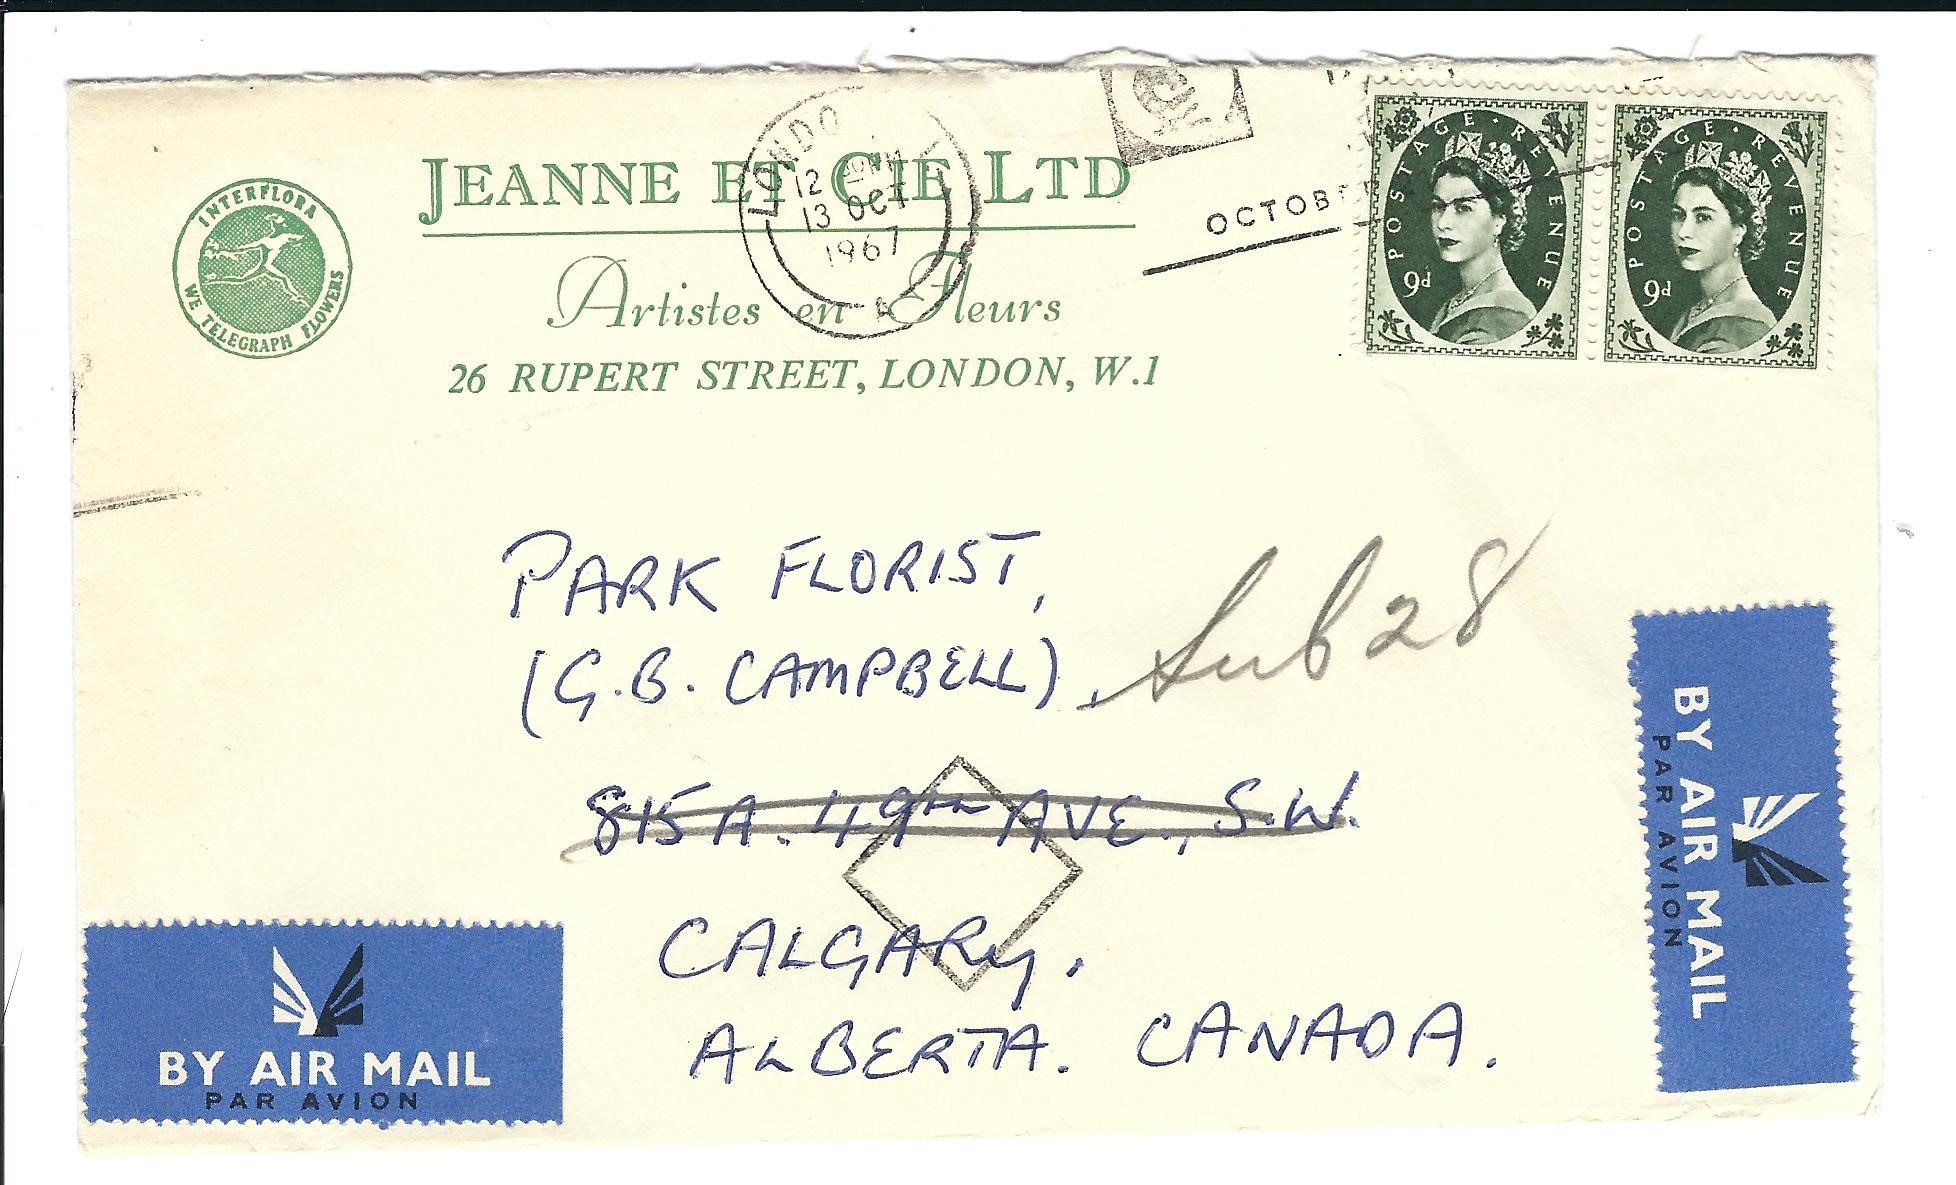 INTERFLORA
WE TELEGRAPH FLOWERS
JEANNE ET CIE LTD
Artistes en Fleurs
26 RUPERT STREET, LONDON, W.1
LONDO
12
13 OCT
1967
A
OCTOBE
POSTAGE · REVENUE
9d
POSTAGE · REVENUE
9d
PARK FLORIST,
(G.B. CAMPBELL),
Sub 28
815A. 49TH AVE., S.W.
CALGARY.
ALBERTA. CANADA.
BY AIR MAIL
PAR AVION
BY AIR MAIL
PAR AVION